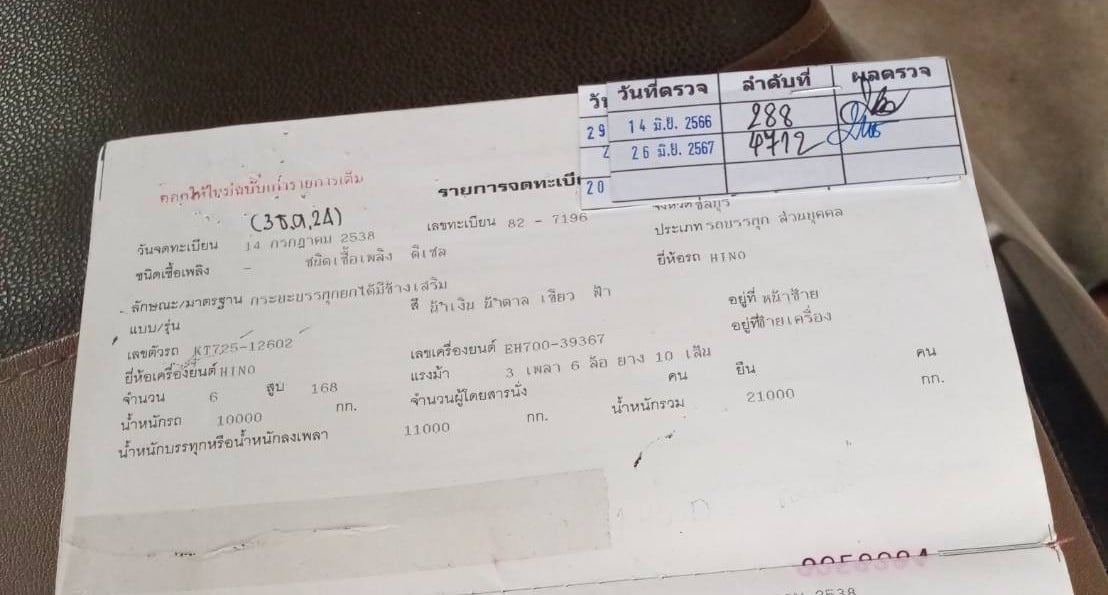 วันที่ตรวจ ลำดับที่ ผลตรวจ
29 14 มิ.ย. 2566 288
26 มิ.ย. 2567 4712
20
ออกให้ใหม่ฉบับเก่ารายการเต็ม
รายการจดทะเบีย
(3ธ.ค.24)
จังหวัดชลบุรี
วันจดทะเบียน 14 กรกฎาคม 2538 เลขทะเบียน 82 - 7196 ประเภทรถบรรทุก ส่วนบุคคล
ชนิดเชื้อเพลิง - ชนิดเชื้อเพลิง ดีเซล ยี่ห้อรถ HINO
ลักษณะ/มาตรฐาน กระบะบรรทุกยกได้มีข้างเสริม สี น้ำเงิน น้ำตาล เขียว ฟ้า
แบบ/รุ่น อยู่ที่ หน้าซ้าย
เลขตัวรถ KT725-12602 เลขเครื่องยนต์ EH700-39367 อยู่ที่ซ้ายเครื่อง
ยี่ห้อเครื่องยนต์ HINO แรงม้า 3 เพลา 6 ล้อ ยาง 10 เส้น
จำนวน 6 สูบ 168 จำนวนผู้โดยสารนั่ง คน ยืน คน
น้ำหนักรถ 10000 กก. น้ำหนักรวม 21000 กก.
น้ำหนักบรรทุกหรือน้ำหนักลงเพลา 11000 กก.
2538